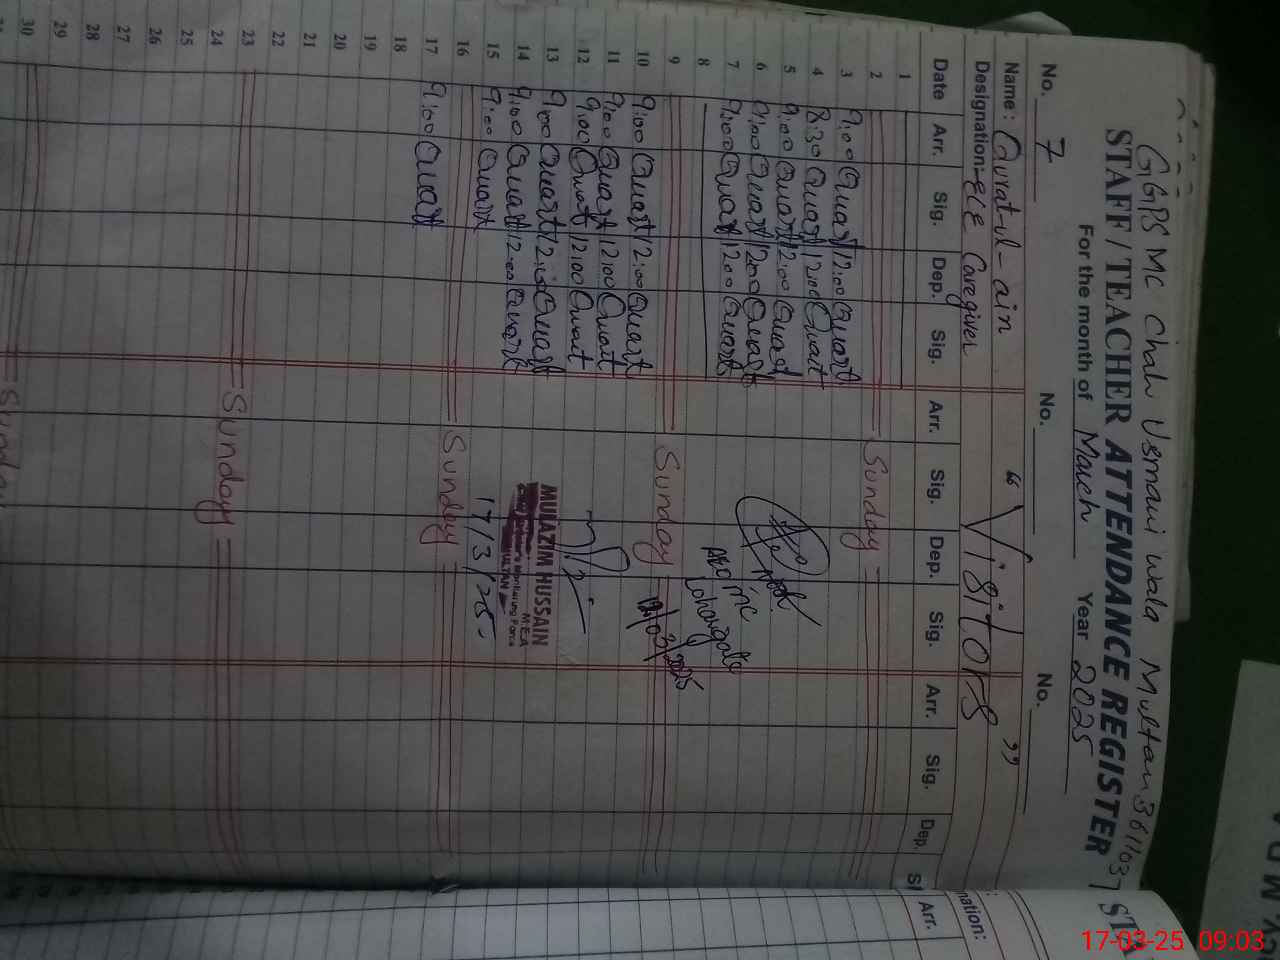 GGPS MC Chah Usmani wala Multan 3611037
STAFF / TEACHER ATTENDANCE REGISTER
For the month of March Year 2025
No. 7 No. No.
Name: Qurat-ul-ain " Visitors "
Designation: ECE Caregiver
Date Arr. Sig. Dep. Sig. Arr. Sig. Dep. Sig. Arr. Sig. Dep.
1
2 Sunday
3 9:00 Qurat 12:00 Qurat
4 8:30 Qurat 12:00 Qurat
5 9:00 Qurat 12:00 Qurat
6 9:00 Qurat 1200 Qurat
7 9:00 Qurat 1200 Qurat
8
9 Sunday
10 9:00 Qurat 12:00 Qurat
11 9:00 Qurat 12:00 Qurat
12 9:00 Qurat 12:00 Qurat
13 9:00 Qurat 12:00 Qurat
14 9:00 Qurat 12:00 Qurat
15 9:00 Qurat
16 Sunday
17 9:00 Qurat
18
19
20
21
22
23 Sunday
24
25
26
27
28
29
30 Sunday
MC
03/2025
MULAZIM HUSSAIN
M.E.A
Monitoring Force
MULTAN
17/3/25
nation:
Arr.
17-03-25 09:03